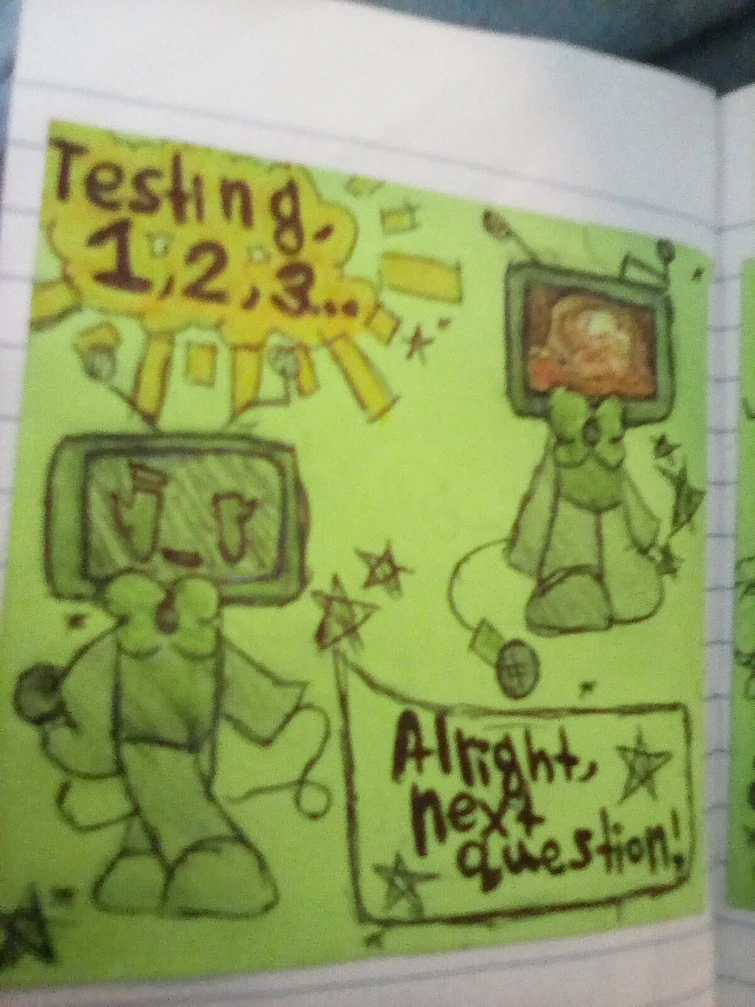 Testing.
1,2,3...
Alright,
next
question!